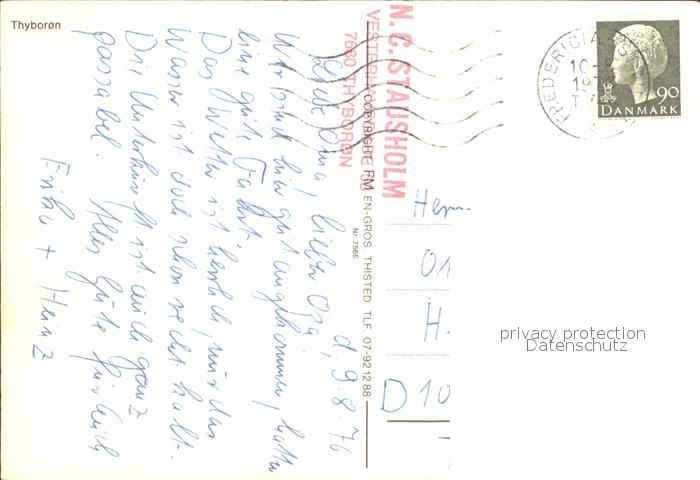 Thyborøn
d. 9.8.76
Liebe Oma, lieber Opa,
Wir sind hier gut angekommen, hatten
eine gute Fahrt.
Das Wetter ist herrlich, nur das
Wasser ist doch schon recht kalt.
Die Unterkunft ist auch ganz
passabel. Alles Gute für Euch
Erika + Heinz
N. C. STAUSHOLM
7680 THYBORØN
COPYRIGHT FM EN-GROS THISTED TLF. 07-92 12 88
Nr. 7565
FREDERICIA
90
DANMARK
H.
D 10
privacy protection
Datenschutz